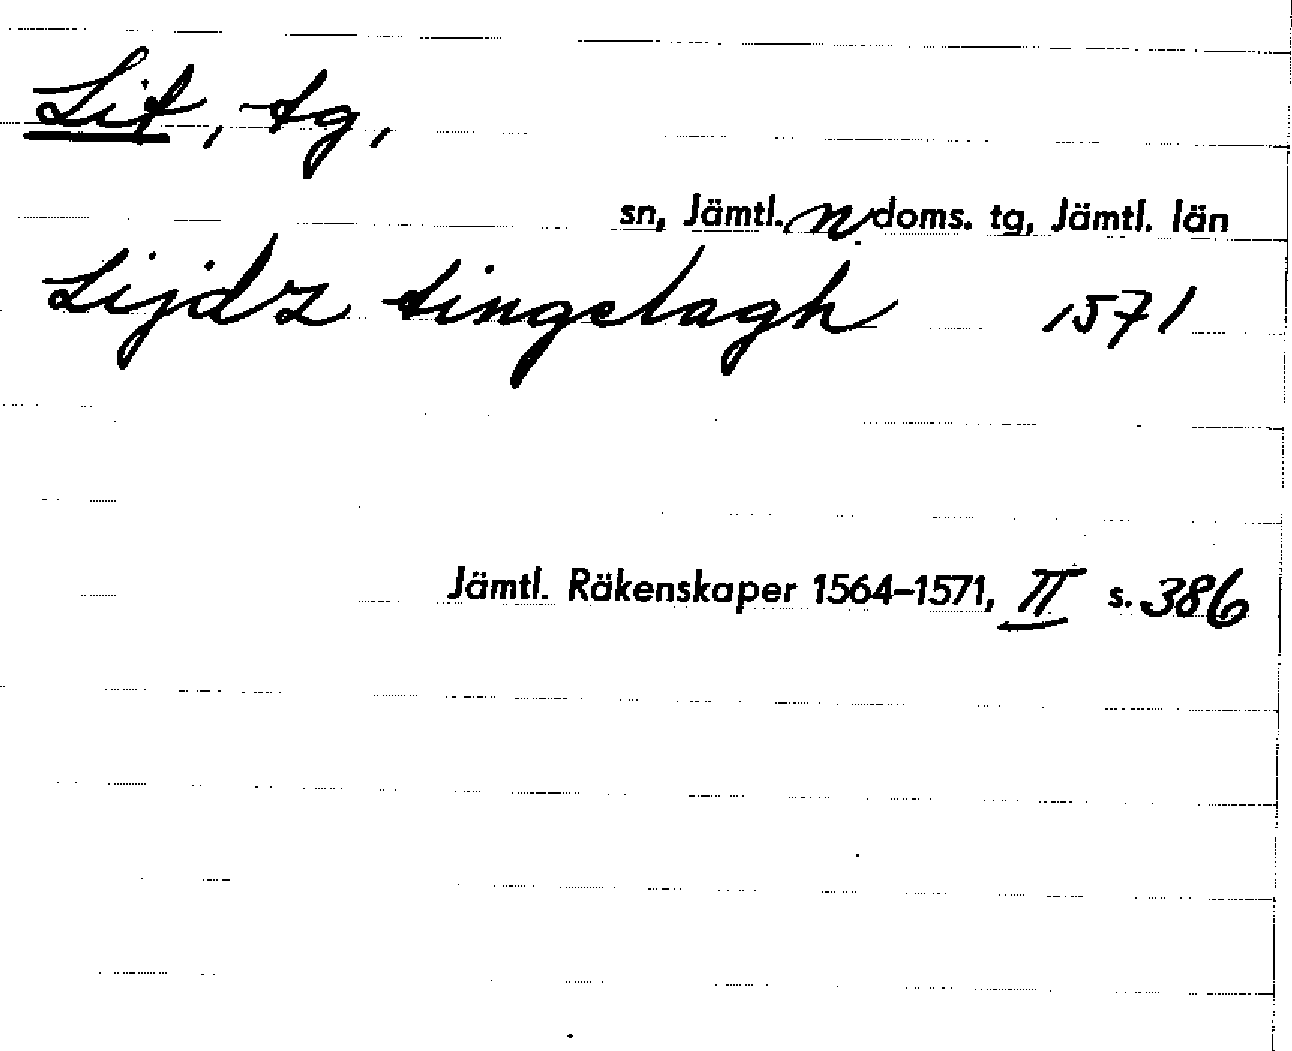 Lit, tg,
sn, Jämtl. n doms. tg, Jämtl. län
Lijdz tingelagh 1571
Jämtl. Räkenskaper 1564–1571, II s. 386